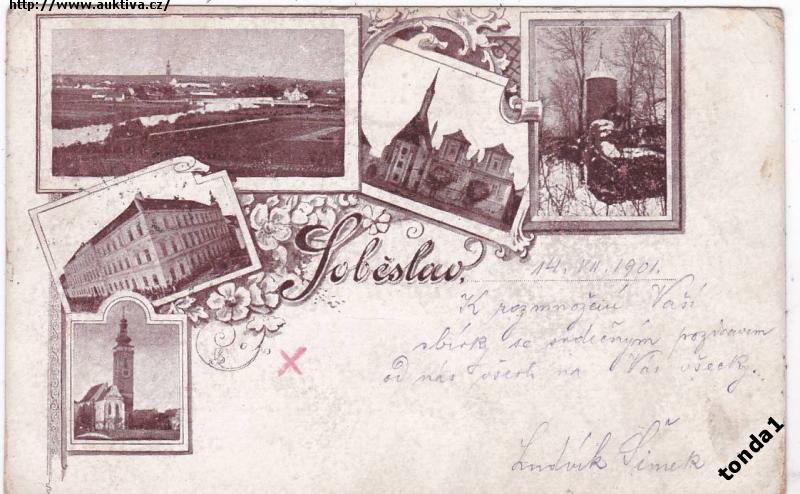 http://www.auktiva.cz/
Soběslav,
14. VII. 1901.
K rozmnožení Vaší
sbírky se srdečným pozdravem
od nás všech na Vás všecky.
Ludvík Šimek
tonda1